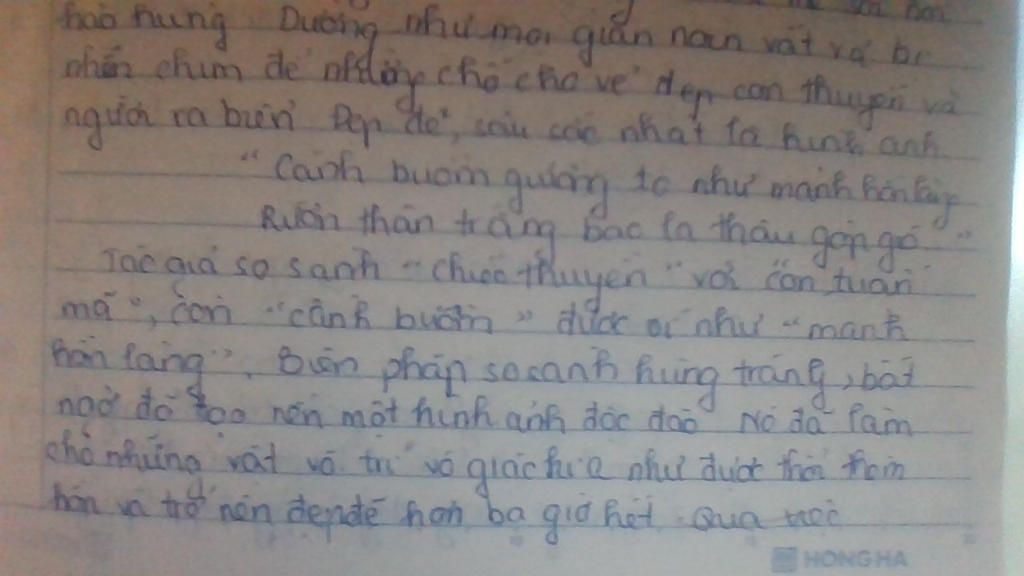 hào hung. Dường như mọi gian nan vất vả bị
nhấn chìm để nhường chỗ cho vẻ đẹp con thuyền và
người ra biển Đẹp đẽ, sâu sắc nhất là hình ảnh
"Cánh buồm giương to như mảnh hồn làng
Rướn thân trắng bao la thâu góp gió"
Tác giả so sánh "chiếc thuyền" với "con tuấn
mã", còn "cánh buồm" được ví như "mảnh
hồn làng". Biện pháp so sánh hùng tráng, bất
ngờ đó tạo nên một hình ảnh độc đáo Nó đã làm
cho những vật vô tri vô giác kia như được thổi thêm
hồn và trở nên đẹp đẽ hơn bao giờ hết. Qua
HONG HA